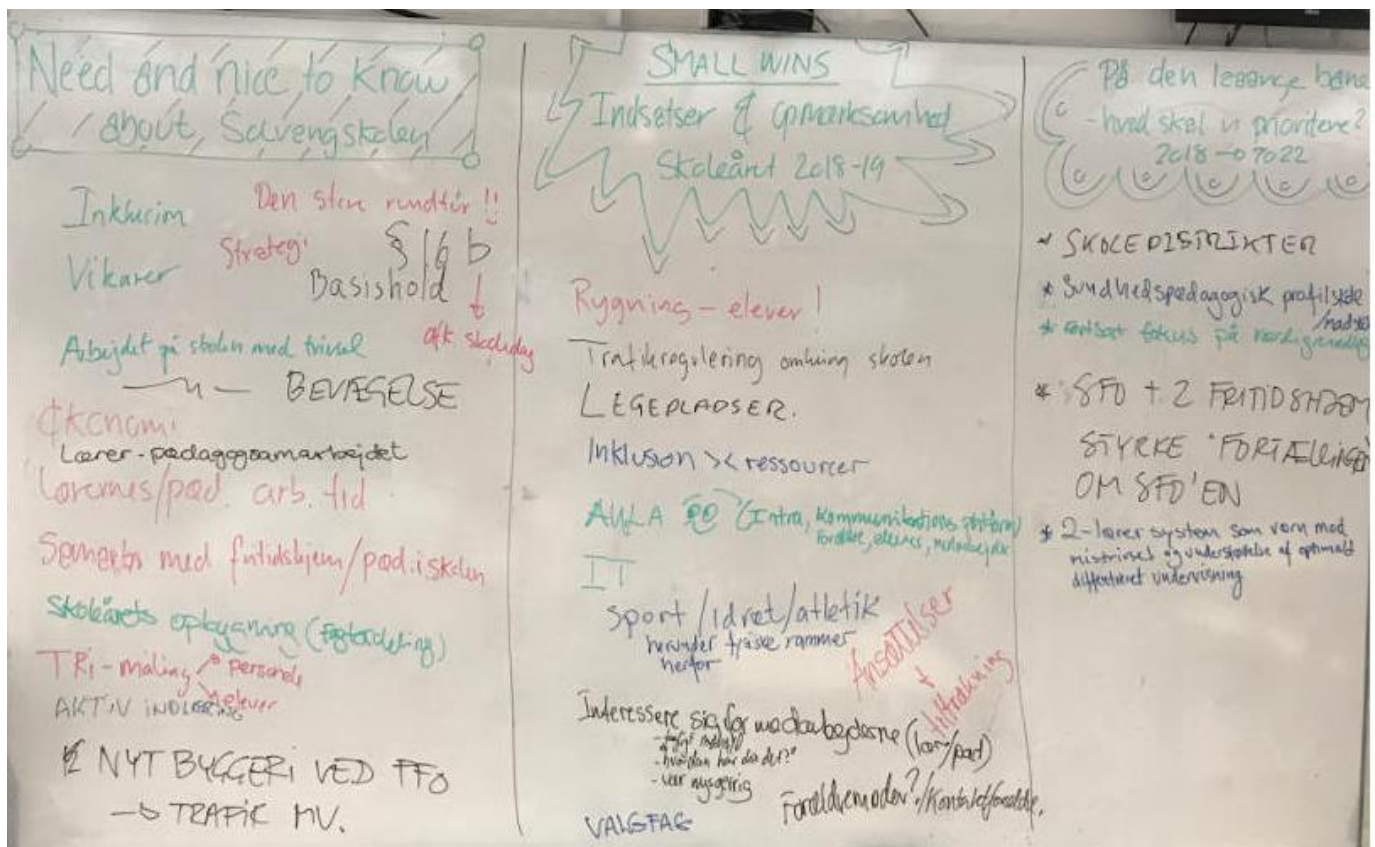 Need and nice to know
about Sølvengskolen
Inklusion
Den store rundtur !!
Vikarer
Strategi
§ 16 b
Basishold
afk skoledag
Arbejdet på skolen med trivsel
— " — BEVÆGELSE
Økonomi
Lærer-pædagogsamarbejdet
Lærernes/pæd. arb. tid
Samarb med fritidshjem/pæd. i skolen
Skoleårets opbygning (fagfordeling)
TRI-måling personale
elever
AKTIV INDLÆRING
NYT BYGGERI VED FFO
→ TRAFIK MV.
SMALL WINS
Indsatser & opmærksomhed
Skoleåret 2018-19
Rygning - elever!
Trafikregulering omkring skolen
LEGEPLADSER.
Inklusion >< ressourcer
AULA (Intra, kommunikations platform/
forældre, elever, medarbejder
IT
Sport/idræt/atletik
herunder fysiske rammer
herfor
Ansættelser
+
tiltrækning
Interessere sig for medarbejderne (lær/pæd)
- hvordan har du det?"
- vær nysgerrig
Forældremøder?/Kontaktforældre.
VALGFAG
På den længe bane
- hvad skal vi prioritere?
2018 → 2022
* SKOLEDISTRIKTER
* Sundhedspædagogisk profilskole
* fortsat fokus på
* SFO + 2 FRITIDSHJEM
STYRKE "FORTÆLLINGEN
OM SFO'EN
* 2-lærer system som værn mod
mistrivsel og understøttelse af optimalt
differentieret undervisning